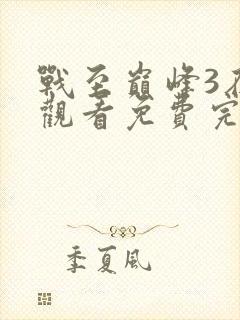 戰至巔峰3
觀看免費完
季夏風